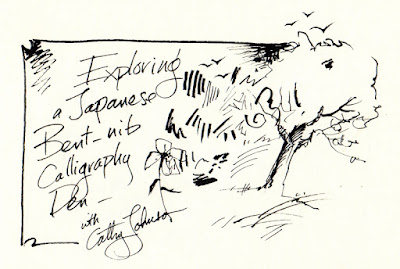 Exploring
a Japanese
Bent-nib
Calligraphy
Pen-
with
Cathy Johnson